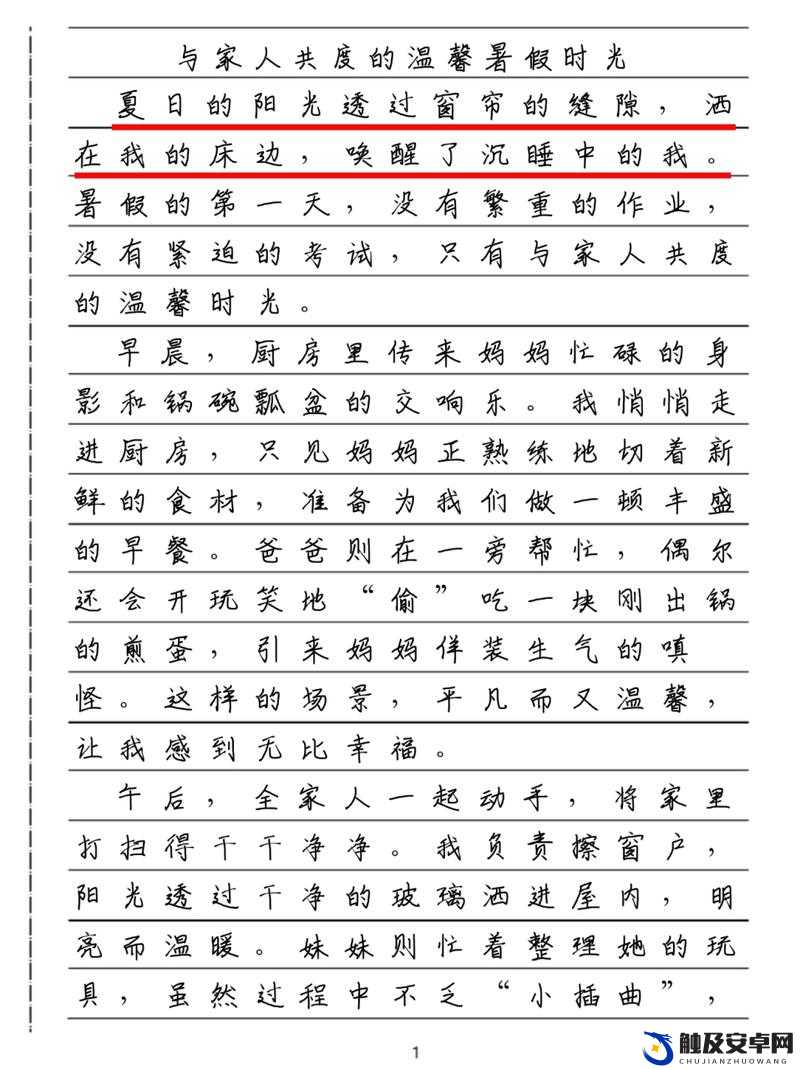 与家人共度的温馨暑假时光
夏日的阳光透过窗帘的缝隙，洒
在我的床边，唤醒了沉睡中的我。
暑假的第一天，没有繁重的作业，
没有紧迫的考试，只有与家人共度
的温馨时光。
早晨，厨房里传来妈妈忙碌的身
影和锅碗瓢盆的交响乐。我悄悄走
进厨房，只见妈妈正熟练地切着新
鲜的食材，准备为我们做一顿丰盛
的早餐。爸爸则在一旁帮忙，偶尔
还会开玩笑地“偷”吃一块刚出锅
的煎蛋，引来妈妈佯装生气的嗔
怪。这样的场景，平凡而又温馨，
让我感到无比幸福。
午后，全家人一起动手，将家里
打扫得干干净净。我负责擦窗户，
阳光透过干净的玻璃洒进屋内，明
亮而温暖。妹妹则忙着整理她的玩
具，虽然过程中不乏“小插曲”，
1
触及安卓网
CHUJIANZHUOWANG